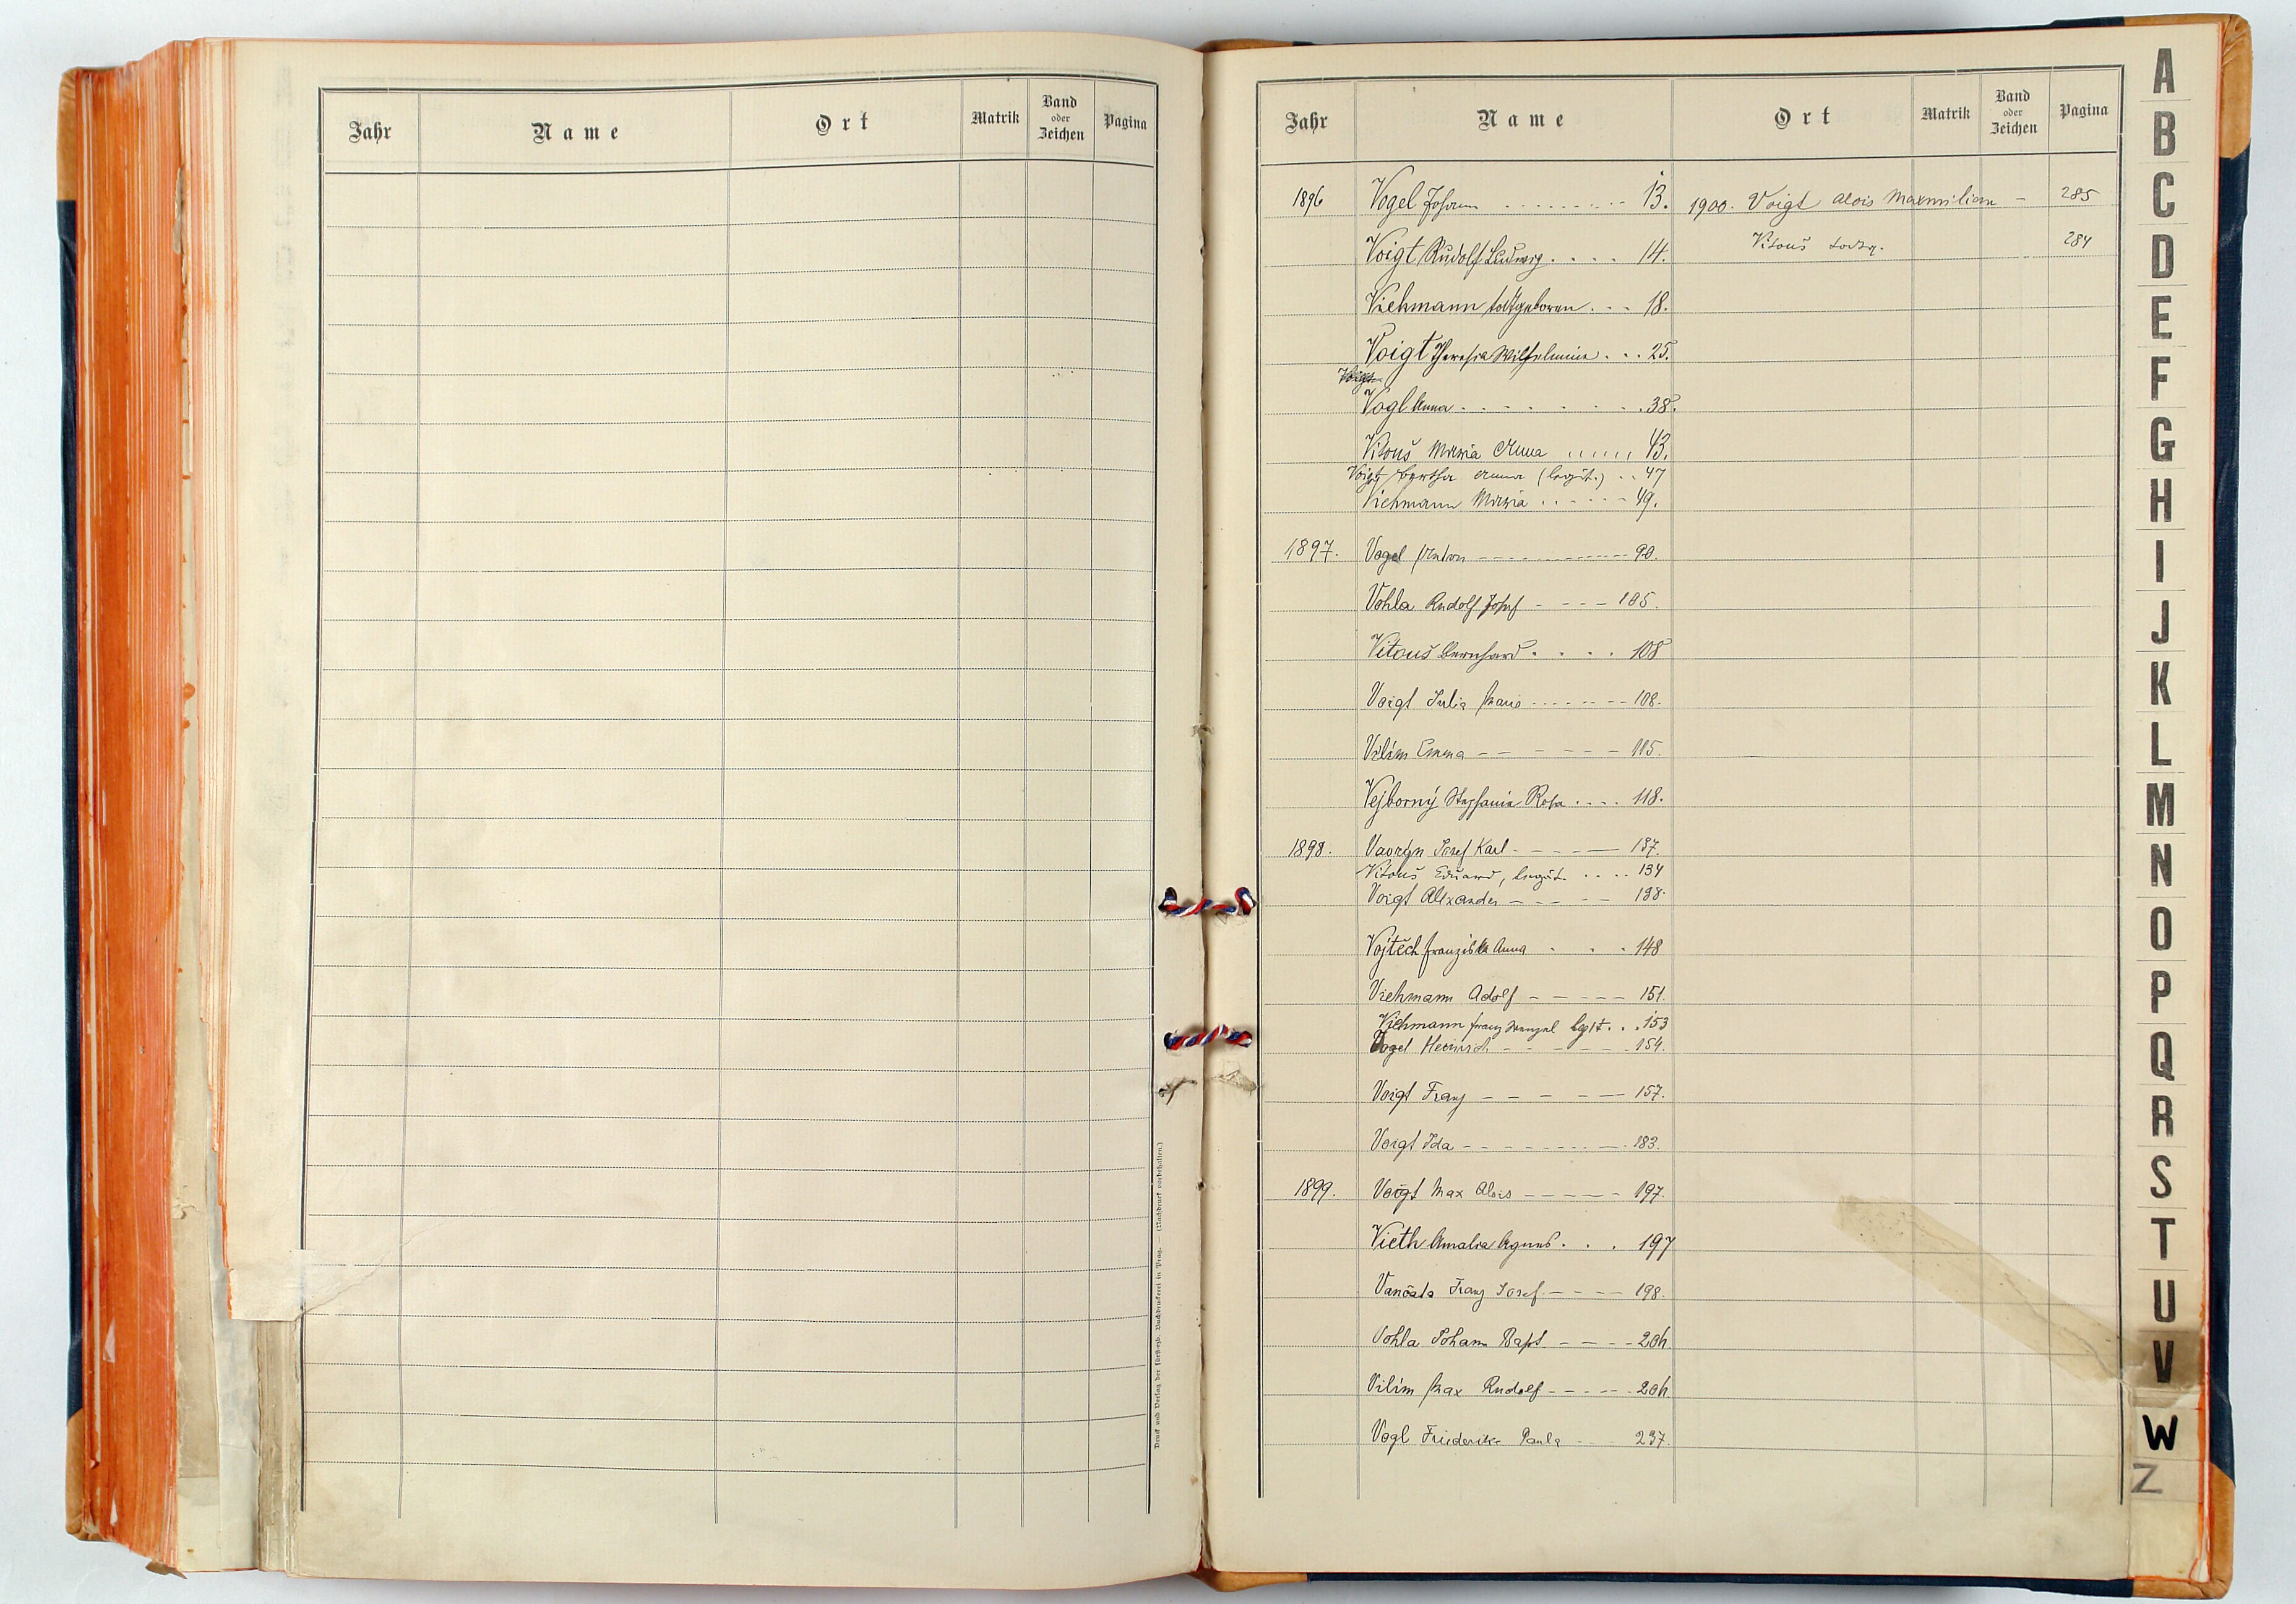 Jahr Name Ort Matrik Band oder Zeichen Pagina
Druck und Verlag der fürsterzb. Buchdruckerei in Prag. — (Nachdruck vorbehalten.)
Jahr Name Ort Matrik Band oder Zeichen Pagina
1896 Vogel Johann . . . . . . . . . 13. 1900. Voigt Alois Maxmilian – 285
Vitouš todtg. 284
Voigt Rudolf Ludwig . . . . 14.
Viehmann todtgeboren . . . 18.
Voigt Theresia Wilhelmine . . . 25.
Voigt
Vogl Anna . . . . . . . . 38.
Vitouš Maria Anna . . . . . . 43.
Voigt Bertha Anna (legit.) . . 47
Viehmann Maria . . . . . . 49.
1897. Vogel Anton – – – – – – 90.
Vohla Rudolf Josef – – – – 105.
Vitouš Bernhard . . . . 108
Voigt Julia Marie . . . . . – – – 108.
Vilím Emma – – – – – – – 115.
Vejborný Stephanie Rosa . . . . 118.
1898. Josef Karl – – – – — 137.
Vitouš Eduard, legit. . . . . 134
Voigt Alexander – – – – – 138.
Vojtěch Franziska Anna . . . 148
Viehmann Adolf – – – – – 151.
Viehmann Franz Wenzel legit. . . 153
Vogel Heinrich – – – – – – 154.
Voigt Franz – – – – — 157.
Voigt Ida – – – – – – – — 183.
1899. Voigt Max Alois – – – – – – 197.
Vieth Amalia Agnes . . . 197
Vančata Franz Josef – – – – – 198.
Vohla Johann Bapt. – – – – – 204.
Vilím Max Rudolf – – – – – 204.
Vogl Friederike Paula – – 237.
A
B
C
D
E
F
G
H
I
J
K
L
M
N
O
P
Q
R
S
T
U
V
W
Z